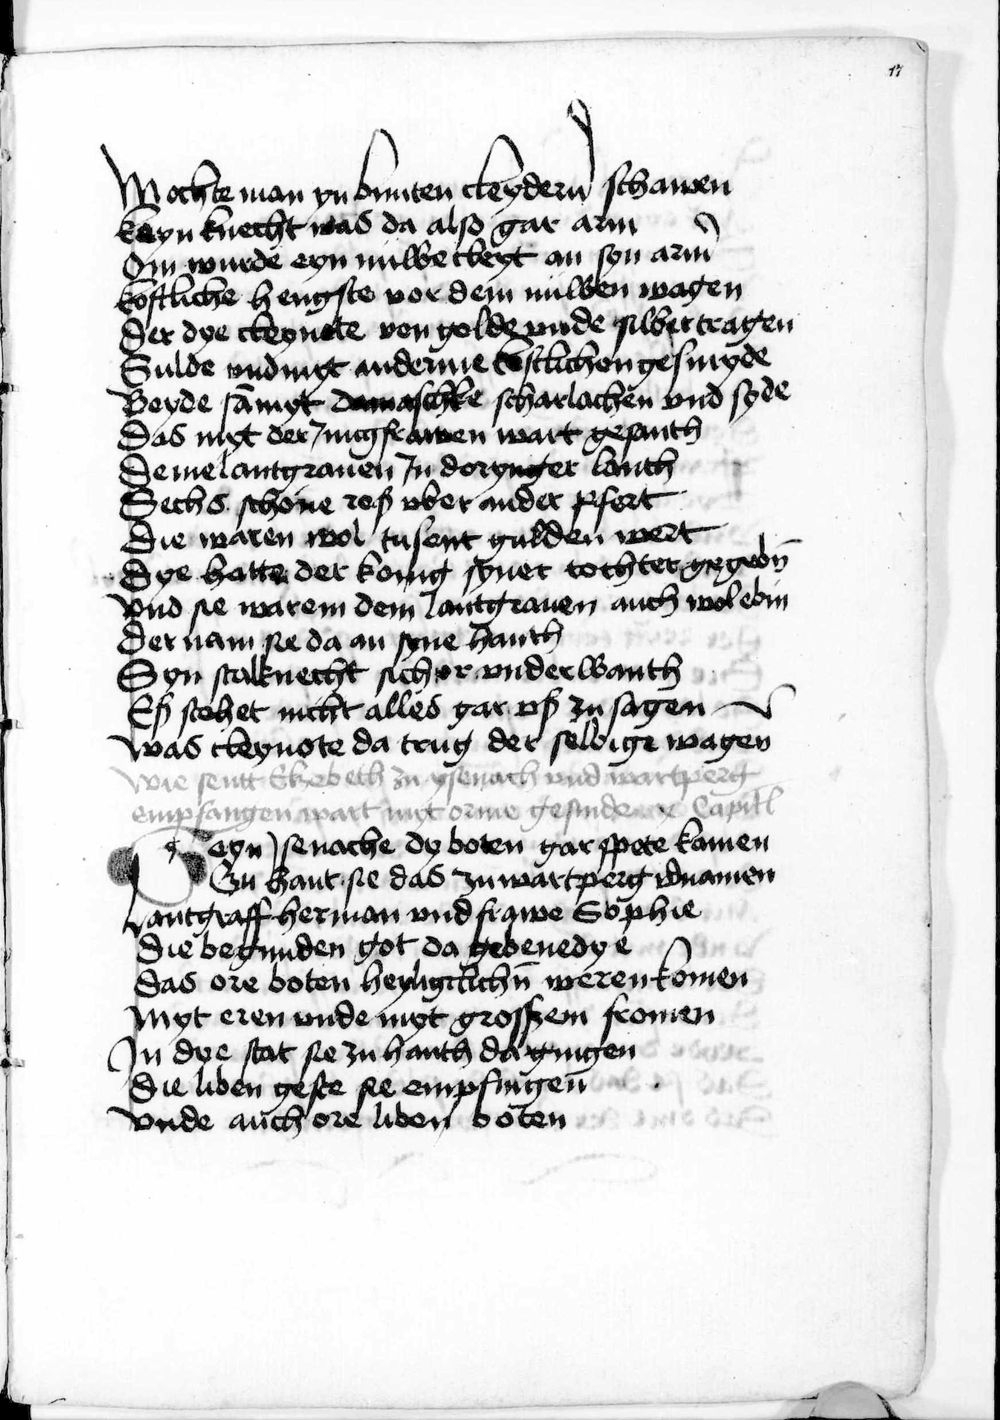 17
Mochte man yn bunten cleydern schawen
keyn knecht was da also gar arm
Om wurde eyn nuwe cleyt an syn arm
kostliche hengste vor dem nuwen wagen
Der dye cleynote von golde vnde silber tragen
Sulde vnd myt anderme kostlichen gesmyde
Beyde samyt damaschke scharlachen vnd syde
Das myt der Jungfrawen wart gesanth
Deme lantgrauen Jn dorynger lanth
Sechs schone roß vber ander pfert
Die waren wol tusent gulden wert
Dye hatte der konig syner tochter gegebin
vnd sie warem dem lantgrauen auch wol ebin
Der nam sie da an syne hanth
Syn stalknecht sich er vnder wanth
Eß stehet nicht alles gar vß zu sagen
was cleynote da trug der selbige wagen
wie sentt Elzebeth zu ysenach vnd wartperg
empfangen wart myt orme gesinde x Capitl
eyn ysenache dy boten gar spete kamen
Zu hant sie das zu wartperg vornamen
Lantgraff herman vnd frawe Sophie
Die begunden got da gebenedye
das ore boten heyligklichn weren komen
Myt eren vnde myt grosszem fromen
Jn dye stat sie zu hanth da gingen
die liben geste sie empfingen
vnde auch ore liben boten